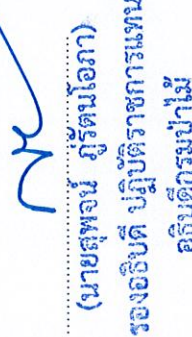 (นายสุพจน์ ภู่รัตนโอภา)
รองอธิบดี ปฏิบัติราชการแทน
อธิบดีกรมป่าไม้